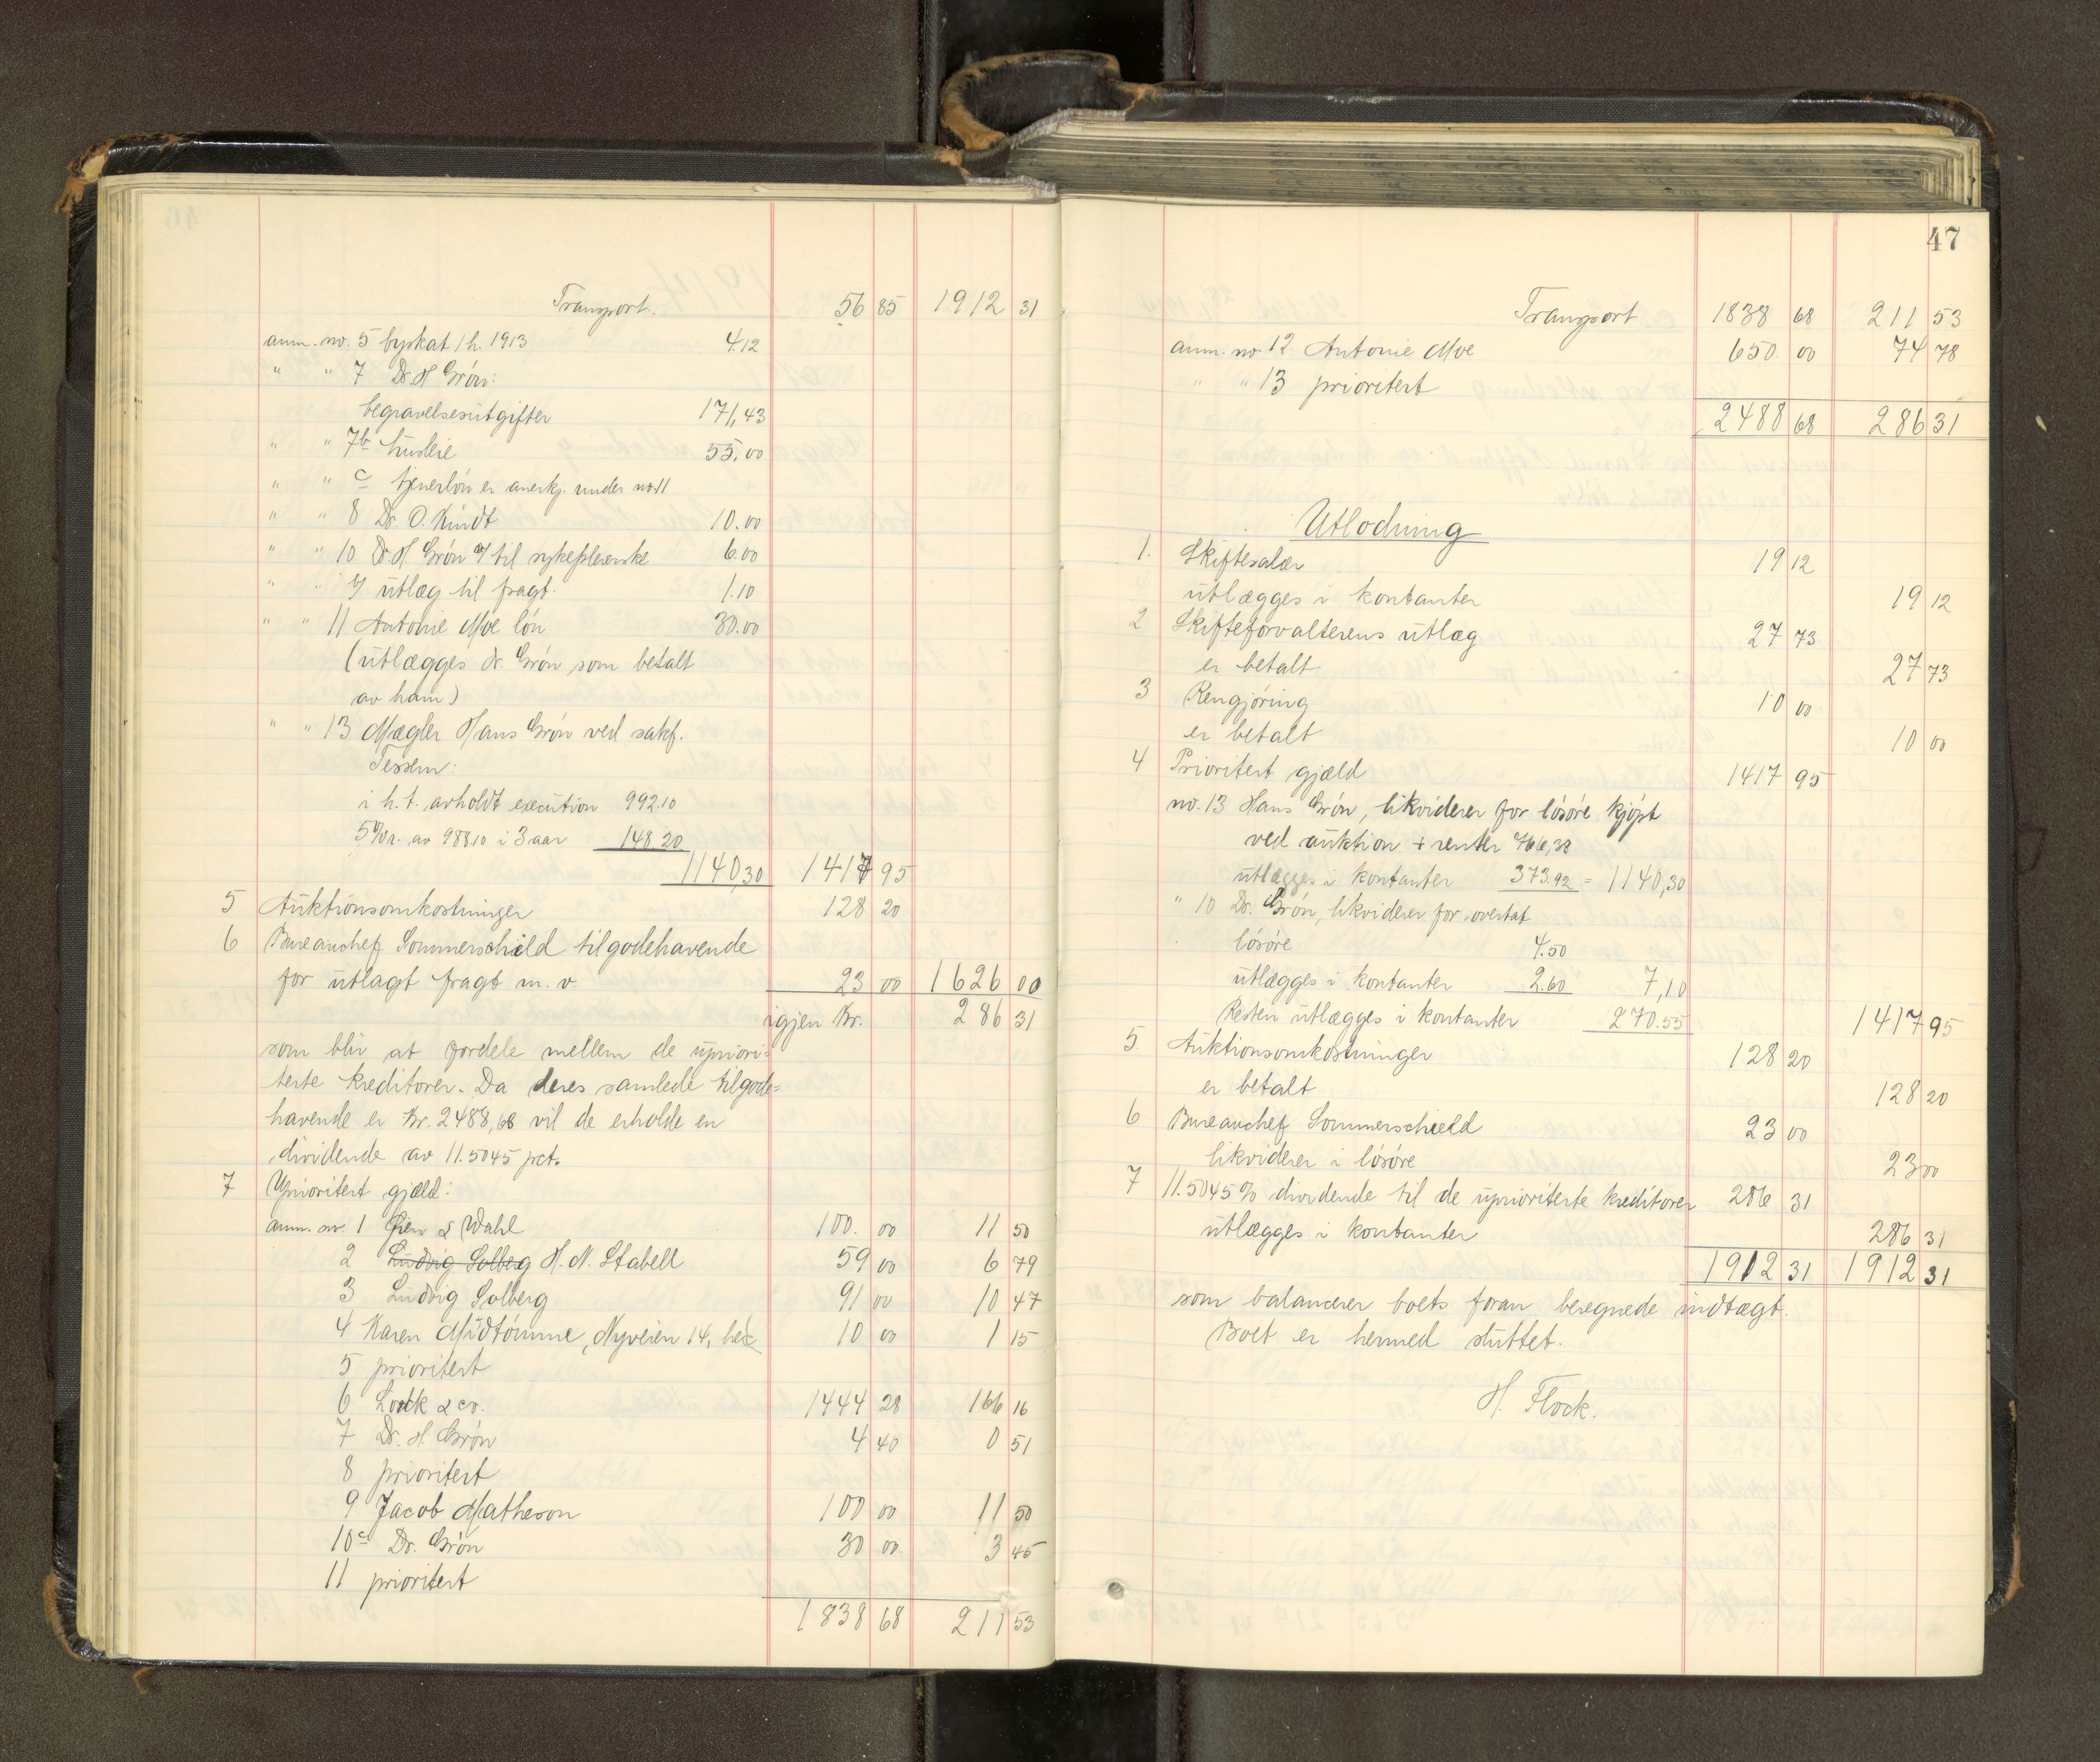 Transport. 56 85 1912 31
anm. no. 5 byskat 1 h. 1913 4.12
" " 7 Dr. H Grøn:
begravelsesutgifter 171,43
" " 7b husleie 55,00
" " c tjenerløn er anerkj. under no. 11
" " 8 Dr. O. Kindt 10.00
" " 10 Dr. H Grøn a/ til sykepleierske 6.00
" " b/ utlæg til fragt. 1.10
" " 11 Antonie Moe løn 30.00
(utlægges dr. Grøn som betalt
av ham)
" " 13 Mægler Hans Grøn ved sakf.
Tessem:
i h. t. avholdt execution 992.10
5% r. av 988.10 i 3 aar 148.20
1140,30 1417 95
5 Auktionsomkostninger 128 20
6 Bureauchef Sommerschield tilgodehavende
for utlagt fragt m. v. 23 00 1626 00
igjen Kr. 286 31
som blir at fordele mellem de upriori-
terte kreditorer. Da deres samlede tilgode=
havende er Kr. 2488,68 vil de erholde en
dividende av 11.5045 pct.
7 Uprioritert gjæld:
anm. no. 1 Øien & Wahl 100. 00 11 50
2 Ludvig Solberg H. M. Stabell 59 00 6 79
3 Ludvig Solberg 91 00 10 47
4 Karen Midtømme, Nyveien 14, her 10 00 1 15
5 prioritert
6 Lorck & co. 1444 28 166 16
7 Dr. H. Grøn 4 40 0 51
8 prioritert
9 Jacob Matheson 100 00 11 50
10c Dr. Grøn 30 00 3 45
11 prioritert
1838 68 211 53
47
Transport 1838 68 211 53
anm. no. 12 Antonie Moe 650. 00 74 78
" " 13 prioritert
2488 68 286 31
Utlodning
1. Skiftesalær 19 12
utlægges i kontanter 19 12
2 Skifteforvalterens utlæg 27 73
er betalt 27 73
3 Rengjøring 10 00
er betalt 10 00
4 Prioritert gjæld 1417 95
no. 13 Hans Grøn, likviderer for løsøre kjøpt
ved auktion + renter 766,38
utlægges i kontanter 373.92 = 1140,30
" 10 Dr. Grøn, likviderer for overtat
løsøre 4.50
utlægges i kontanter 2.60 7,10
Resten utlægges i kontanter 270.55 1417 95
5. Auktionsomkostninger 128 20
er betalt 128 20
6 Bureauchef Sommerschield 23 00
likviderer i løsøre 23 00
7 11.5045% dividende til de uprioriterte kreditorer 286 31
utlægges i kontanter 286 31
1912 31 1912 31
som balancerer boets foran beregnede indtægt.
Boet er hermed sluttet.
H. Flock.